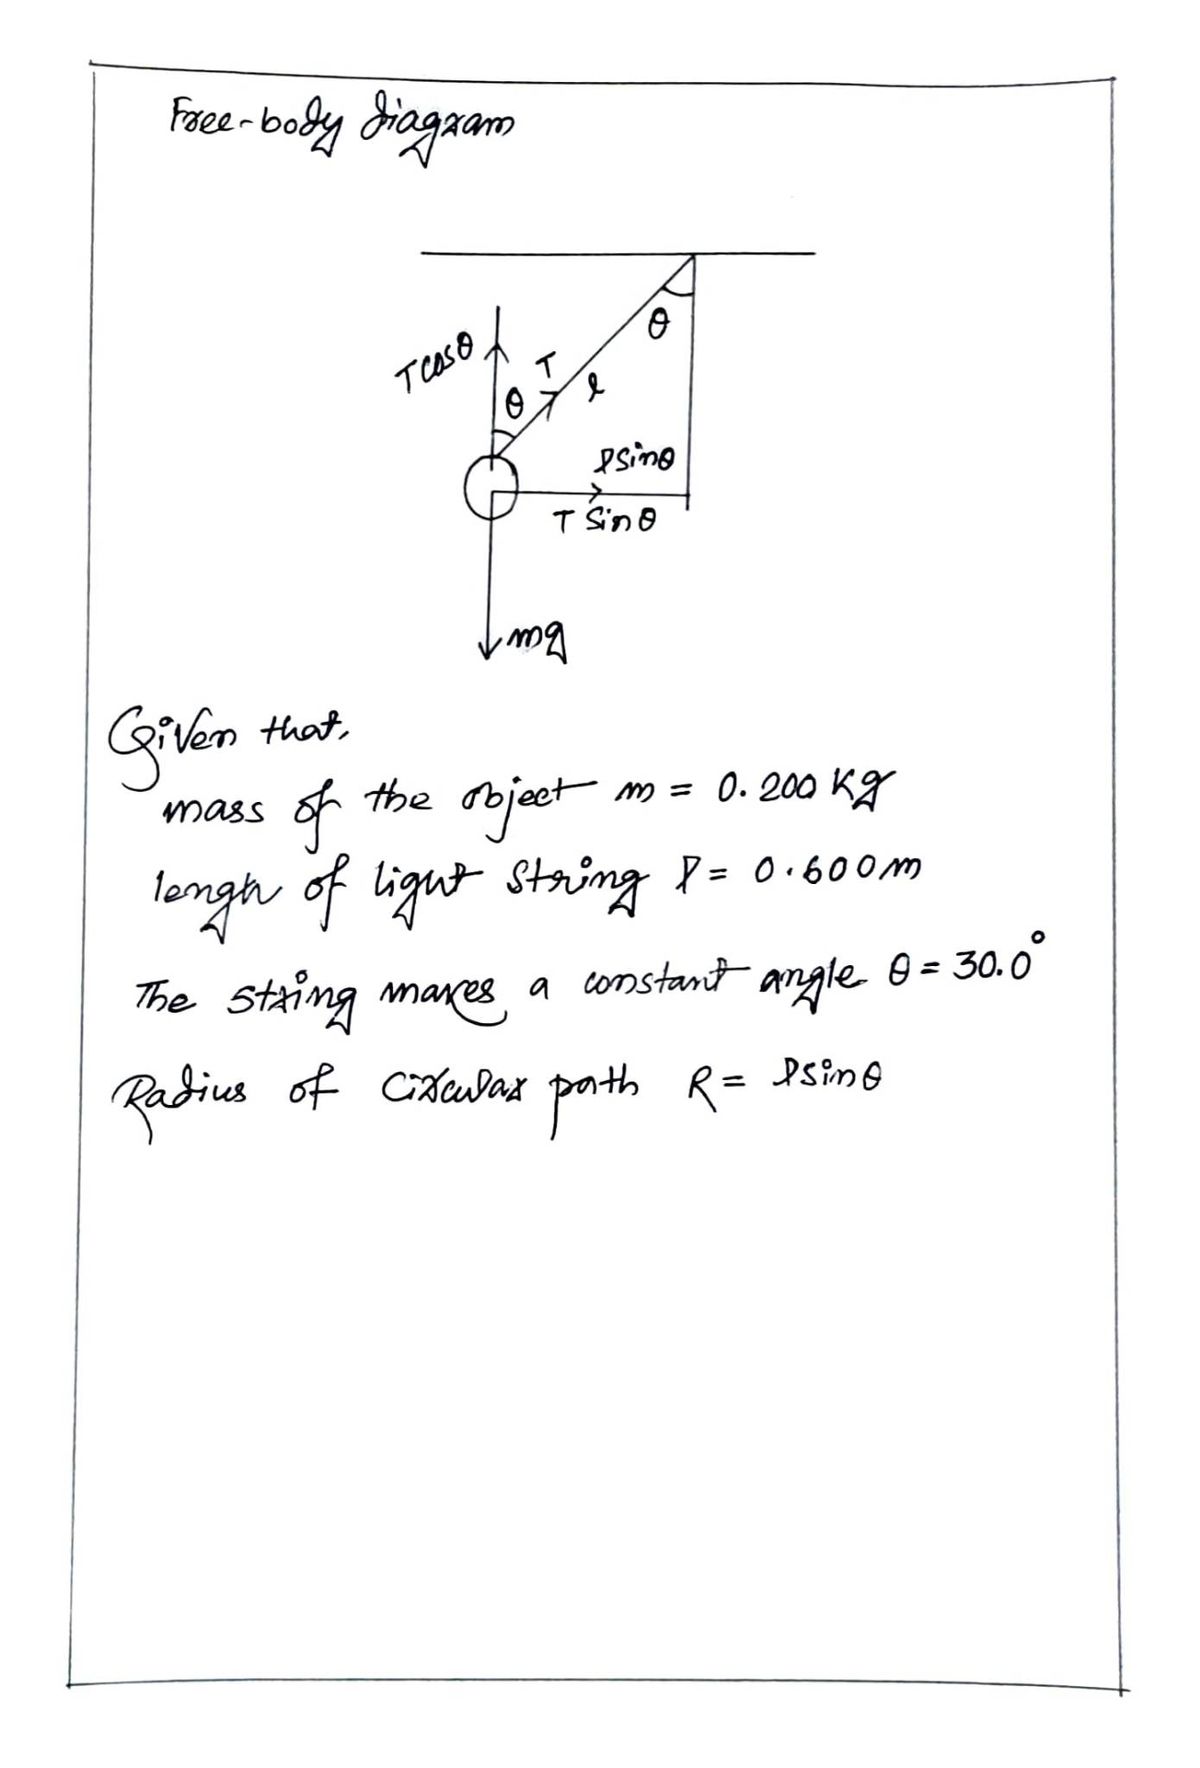 Free-body diagram
T cosθ
θ
T
l
θ
lsinθ
T Sinθ
mg
Given that,
mass of the object m = 0.200 Kg
length of light string l = 0.600m
The string makes a constant angle θ = 30.0°
Radius of circular path R = lsinθ